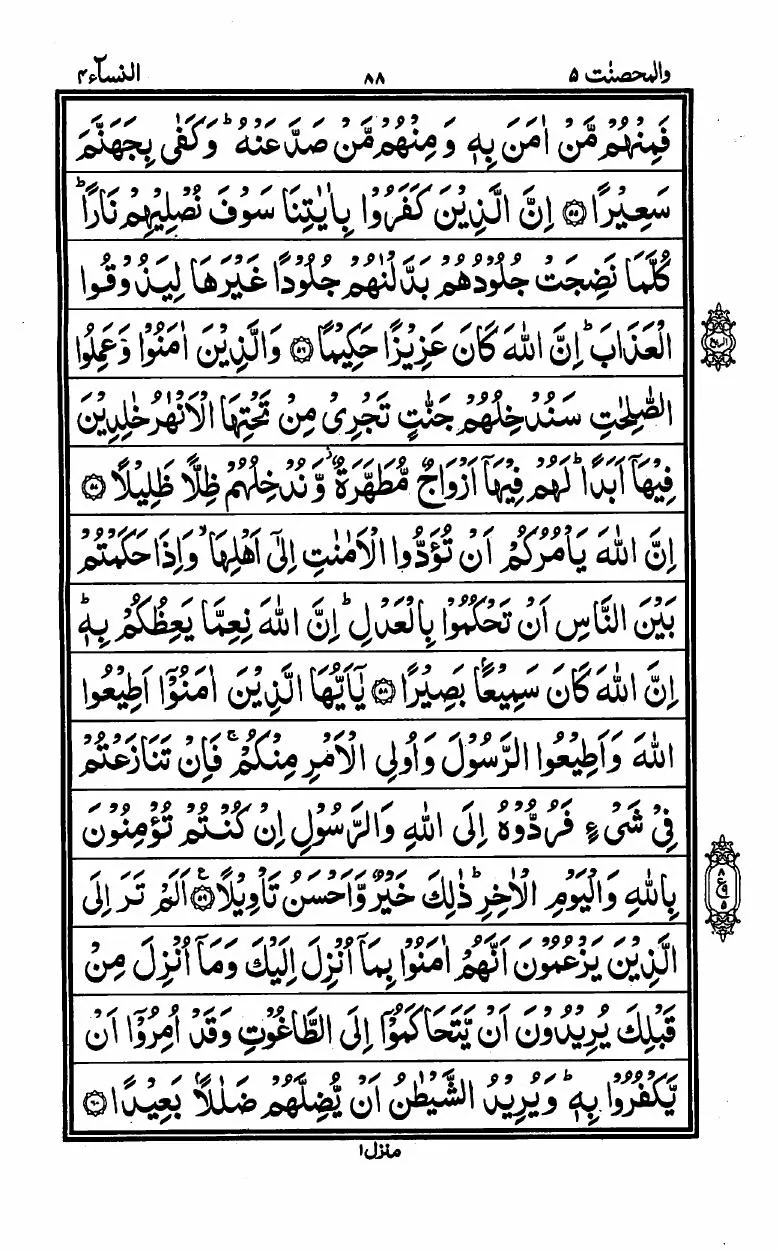 والمحصنت ٥
٨٨
النسآء ٤
فَمِنْهُمْ مَّنْ اٰمَنَ بِهٖ وَمِنْهُمْ مَّنْ صَدَّ عَنْهُ ؕ وَكَفٰى بِجَهَنَّمَ
سَعِيْرًا ۝٥٥ اِنَّ الَّذِيْنَ كَفَرُوْا بِاٰيٰتِنَا سَوْفَ نُصْلِيْهِمْ نَارًا ؕ
كُلَّمَا نَضِجَتْ جُلُوْدُهُمْ بَدَّلْنٰهُمْ جُلُوْدًا غَيْرَهَا لِيَذُوْقُوا
الْعَذَابَ ؕ اِنَّ اللّٰهَ كَانَ عَزِيْزًا حَكِيْمًا ۝٥٦ وَالَّذِيْنَ اٰمَنُوْا وَعَمِلُوا
الصّٰلِحٰتِ سَنُدْخِلُهُمْ جَنّٰتٍ تَجْرِيْ مِنْ تَحْتِهَا الْاَنْهٰرُ خٰلِدِيْنَ
فِيْهَاۤ اَبَدًا ؕ لَهُمْ فِيْهَاۤ اَزْوَاجٌ مُّطَهَّرَةٌ ؗ وَّنُدْخِلُهُمْ ظِلًّا ظَلِيْلًا ۝٥٧
اِنَّ اللّٰهَ يَاْمُرُكُمْ اَنْ تُؤَدُّوا الْاَمٰنٰتِ اِلٰۤى اَهْلِهَا ۙ وَاِذَا حَكَمْتُمْ
بَيْنَ النَّاسِ اَنْ تَحْكُمُوْا بِالْعَدْلِ ؕ اِنَّ اللّٰهَ نِعِمَّا يَعِظُكُمْ بِهٖ ؕ
اِنَّ اللّٰهَ كَانَ سَمِيْعًۢا بَصِيْرًا ۝٥٨ يٰۤاَيُّهَا الَّذِيْنَ اٰمَنُوْۤا اَطِيْعُوا
اللّٰهَ وَاَطِيْعُوا الرَّسُوْلَ وَاُولِى الْاَمْرِ مِنْكُمْ ۚ فَاِنْ تَنَازَعْتُمْ
فِيْ شَيْءٍ فَرُدُّوْهُ اِلَى اللّٰهِ وَالرَّسُوْلِ اِنْ كُنْتُمْ تُؤْمِنُوْنَ
بِاللّٰهِ وَالْيَوْمِ الْاٰخِرِ ؕ ذٰلِكَ خَيْرٌ وَّاَحْسَنُ تَاْوِيْلًا ۝٥٩ ع اَلَمْ تَرَ اِلَى
الَّذِيْنَ يَزْعُمُوْنَ اَنَّهُمْ اٰمَنُوْا بِمَاۤ اُنْزِلَ اِلَيْكَ وَمَاۤ اُنْزِلَ مِنْ
قَبْلِكَ يُرِيْدُوْنَ اَنْ يَّتَحَاكَمُوْۤا اِلَى الطَّاغُوْتِ وَقَدْ اُمِرُوْۤا اَنْ
يَّكْفُرُوْا بِهٖ ؕ وَيُرِيْدُ الشَّيْطٰنُ اَنْ يُّضِلَّهُمْ ضَلٰلًۢا بَعِيْدًا ۝٦٠
الربع
٨
ع
٥
منزل ١